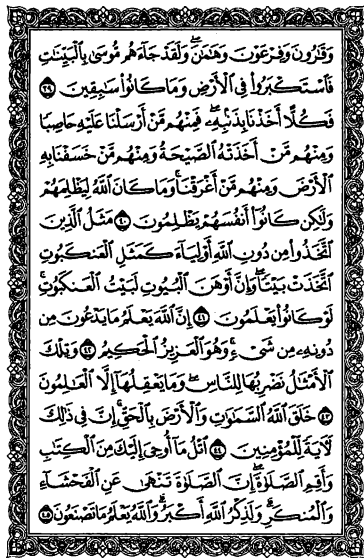 وَقَٰرُونَ وَفِرْعَوْنَ وَهَٰمَٰنَ ۖ وَلَقَدْ جَآءَهُم مُّوسَىٰ بِٱلْبَيِّنَٰتِ
فَٱسْتَكْبَرُوا۟ فِى ٱلْأَرْضِ وَمَا كَانُوا۟ سَٰبِقِينَ ٣٩
فَكُلًّا أَخَذْنَا بِذَنۢبِهِۦ ۖ فَمِنْهُم مَّنْ أَرْسَلْنَا عَلَيْهِ حَاصِبًا
وَمِنْهُم مَّنْ أَخَذَتْهُ ٱلصَّيْحَةُ وَمِنْهُم مَّنْ خَسَفْنَا بِهِ
ٱلْأَرْضَ وَمِنْهُم مَّنْ أَغْرَقْنَا ۚ وَمَا كَانَ ٱللَّهُ لِيَظْلِمَهُمْ
وَلَٰكِن كَانُوٓا۟ أَنفُسَهُمْ يَظْلِمُونَ ٤٠ مَثَلُ ٱلَّذِينَ
ٱتَّخَذُوا۟ مِن دُونِ ٱللَّهِ أَوْلِيَآءَ كَمَثَلِ ٱلْعَنكَبُوتِ
ٱتَّخَذَتْ بَيْتًا ۖ وَإِنَّ أَوْهَنَ ٱلْبُيُوتِ لَبَيْتُ ٱلْعَنكَبُوتِ ۖ
لَوْ كَانُوا۟ يَعْلَمُونَ ٤١ إِنَّ ٱللَّهَ يَعْلَمُ مَا يَدْعُونَ مِن
دُونِهِۦ مِن شَىْءٍ ۚ وَهُوَ ٱلْعَزِيزُ ٱلْحَكِيمُ ٤٢ وَتِلْكَ
ٱلْأَمْثَٰلُ نَضْرِبُهَا لِلنَّاسِ ۖ وَمَا يَعْقِلُهَآ إِلَّا ٱلْعَٰلِمُونَ
٤٣ خَلَقَ ٱللَّهُ ٱلسَّمَٰوَٰتِ وَٱلْأَرْضَ بِٱلْحَقِّ ۚ إِنَّ فِى ذَٰلِكَ
لَءَايَةً لِّلْمُؤْمِنِينَ ٤٤ ٱتْلُ مَآ أُوحِىَ إِلَيْكَ مِنَ ٱلْكِتَٰبِ
وَأَقِمِ ٱلصَّلَوٰةَ ۖ إِنَّ ٱلصَّلَوٰةَ تَنْهَىٰ عَنِ ٱلْفَحْشَآءِ
وَٱلْمُنكَرِ ۗ وَلَذِكْرُ ٱللَّهِ أَكْبَرُ ۗ وَٱللَّهُ يَعْلَمُ مَا تَصْنَعُونَ ٤٥